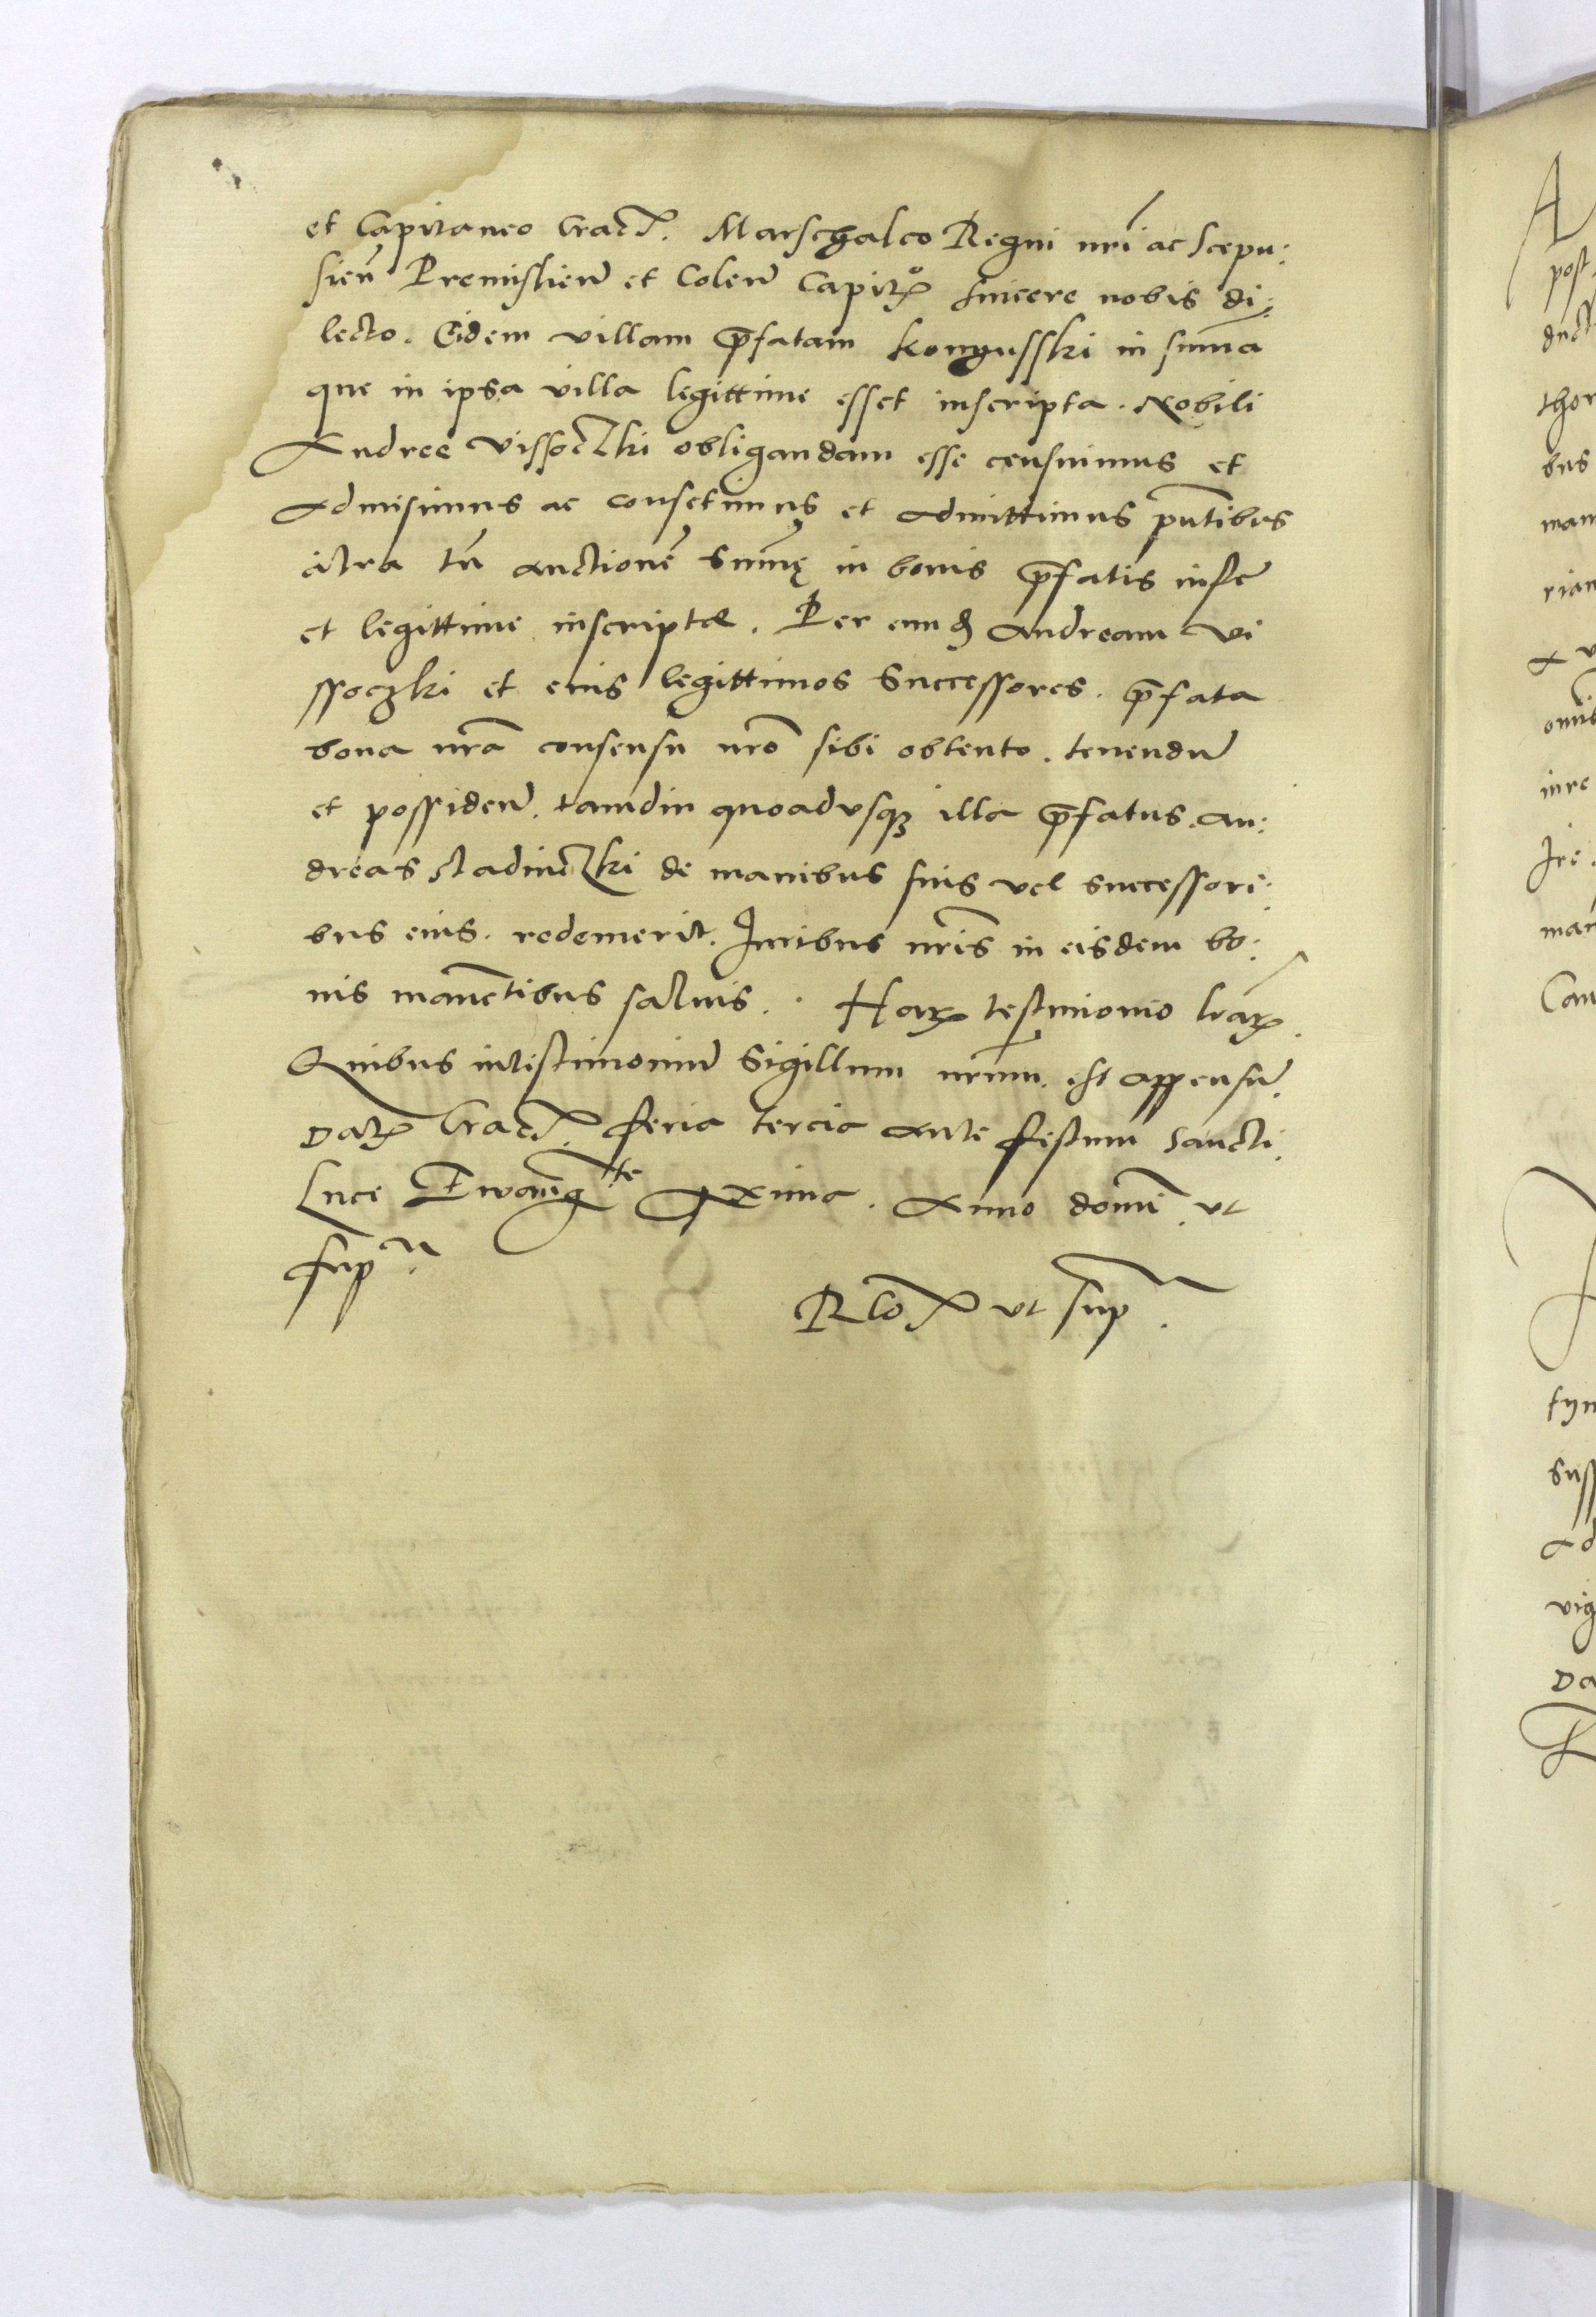 et Capitaneo Crac̄. Marschalco Regni nr̄i ac Scepu:
sien̄ Premislien̄ et Colen̄ Capitꝝ° sincere nobis di:
lecto. Eidem villam p̄fatam Kongusski in sum̄a
que in ipsa villa legittime esset inscripta. Nobili
Andree Vissoczki obligandam esse censuimus et
Admisimus ac consetimus et Admittimus pn̄tibus
citra tn̄ auctionē Sum̄ę in bonis p̄fatis iuste
et legittime inscriptæ. Per eundē Andream Vi
ssoczki et eius legittimos Successores. p̄fata
bona nr̄a consensu nr̄o sibi obtento. tenendū
et possiden̄. tamdiu quoadusqꝫ illa p̄fatus. An:
dreas Stadniczki de manibus suis vel successori:
bus eius. redemerit. Iuribus nr̄is in eisdem bo:
nis manentibus saluis. Harꝝ testimonio lr̄arꝝ.
Quibus in testimoniū Sigillum nr̄um. est appensū.
Datꝝ Crac̄. feria tercia ante festum Sancti.
Luce Ewang̅te proxima. Anno domī. ut
sup̄ᵃ.
Rlo ꝝ ut sup̄.
A
post
duct
thor
bus
mam
rian
omnib
inre
Ire
man
Cam
tyn
suss
ad
vig
Da
R